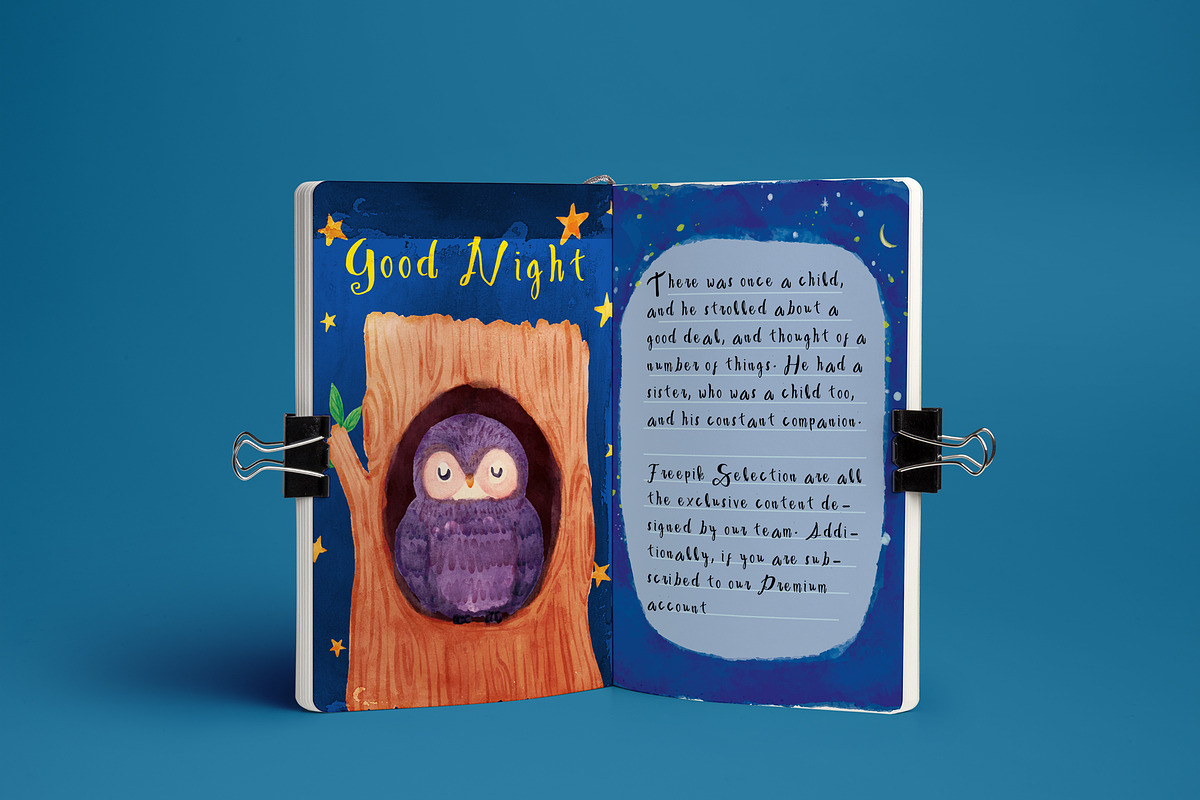 Good Night
There was once a child,
and he strolled about a
good deal, and thought of a
number of things. He had a
sister, who was a child too,
and his constant companion.
Freepik Selection are all
the exclusive content de-
signed by our team. Addi-
tionally, if you are sub-
scribed to our Premium
account